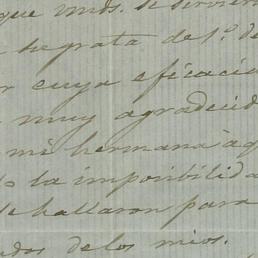 que vmds. se sirvieron
su grata de 1º. de
cuya eficacia
muy agradecid
mi hermana à
la imposibilida
se hallaron para
de los mios.